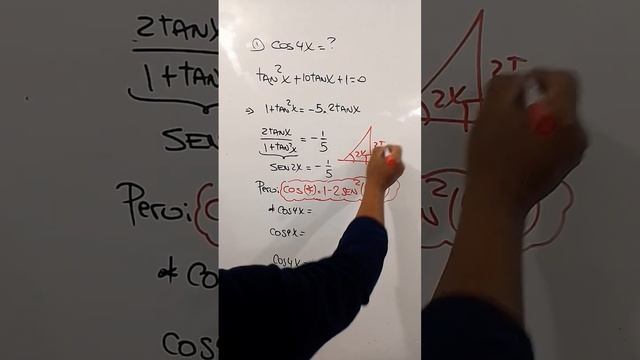 ① cos4x = ?
tan²x + 10tanx + 1 = 0
⇒ 1 + tan²x = -5 · 2tanx
2tanx / 1 + tan²x = - 1/5
2x
2T
sen2x = - 1/5
Pero: cos(*) = 1 - 2sen²
* cos4x =
cos4x =
cos4x =